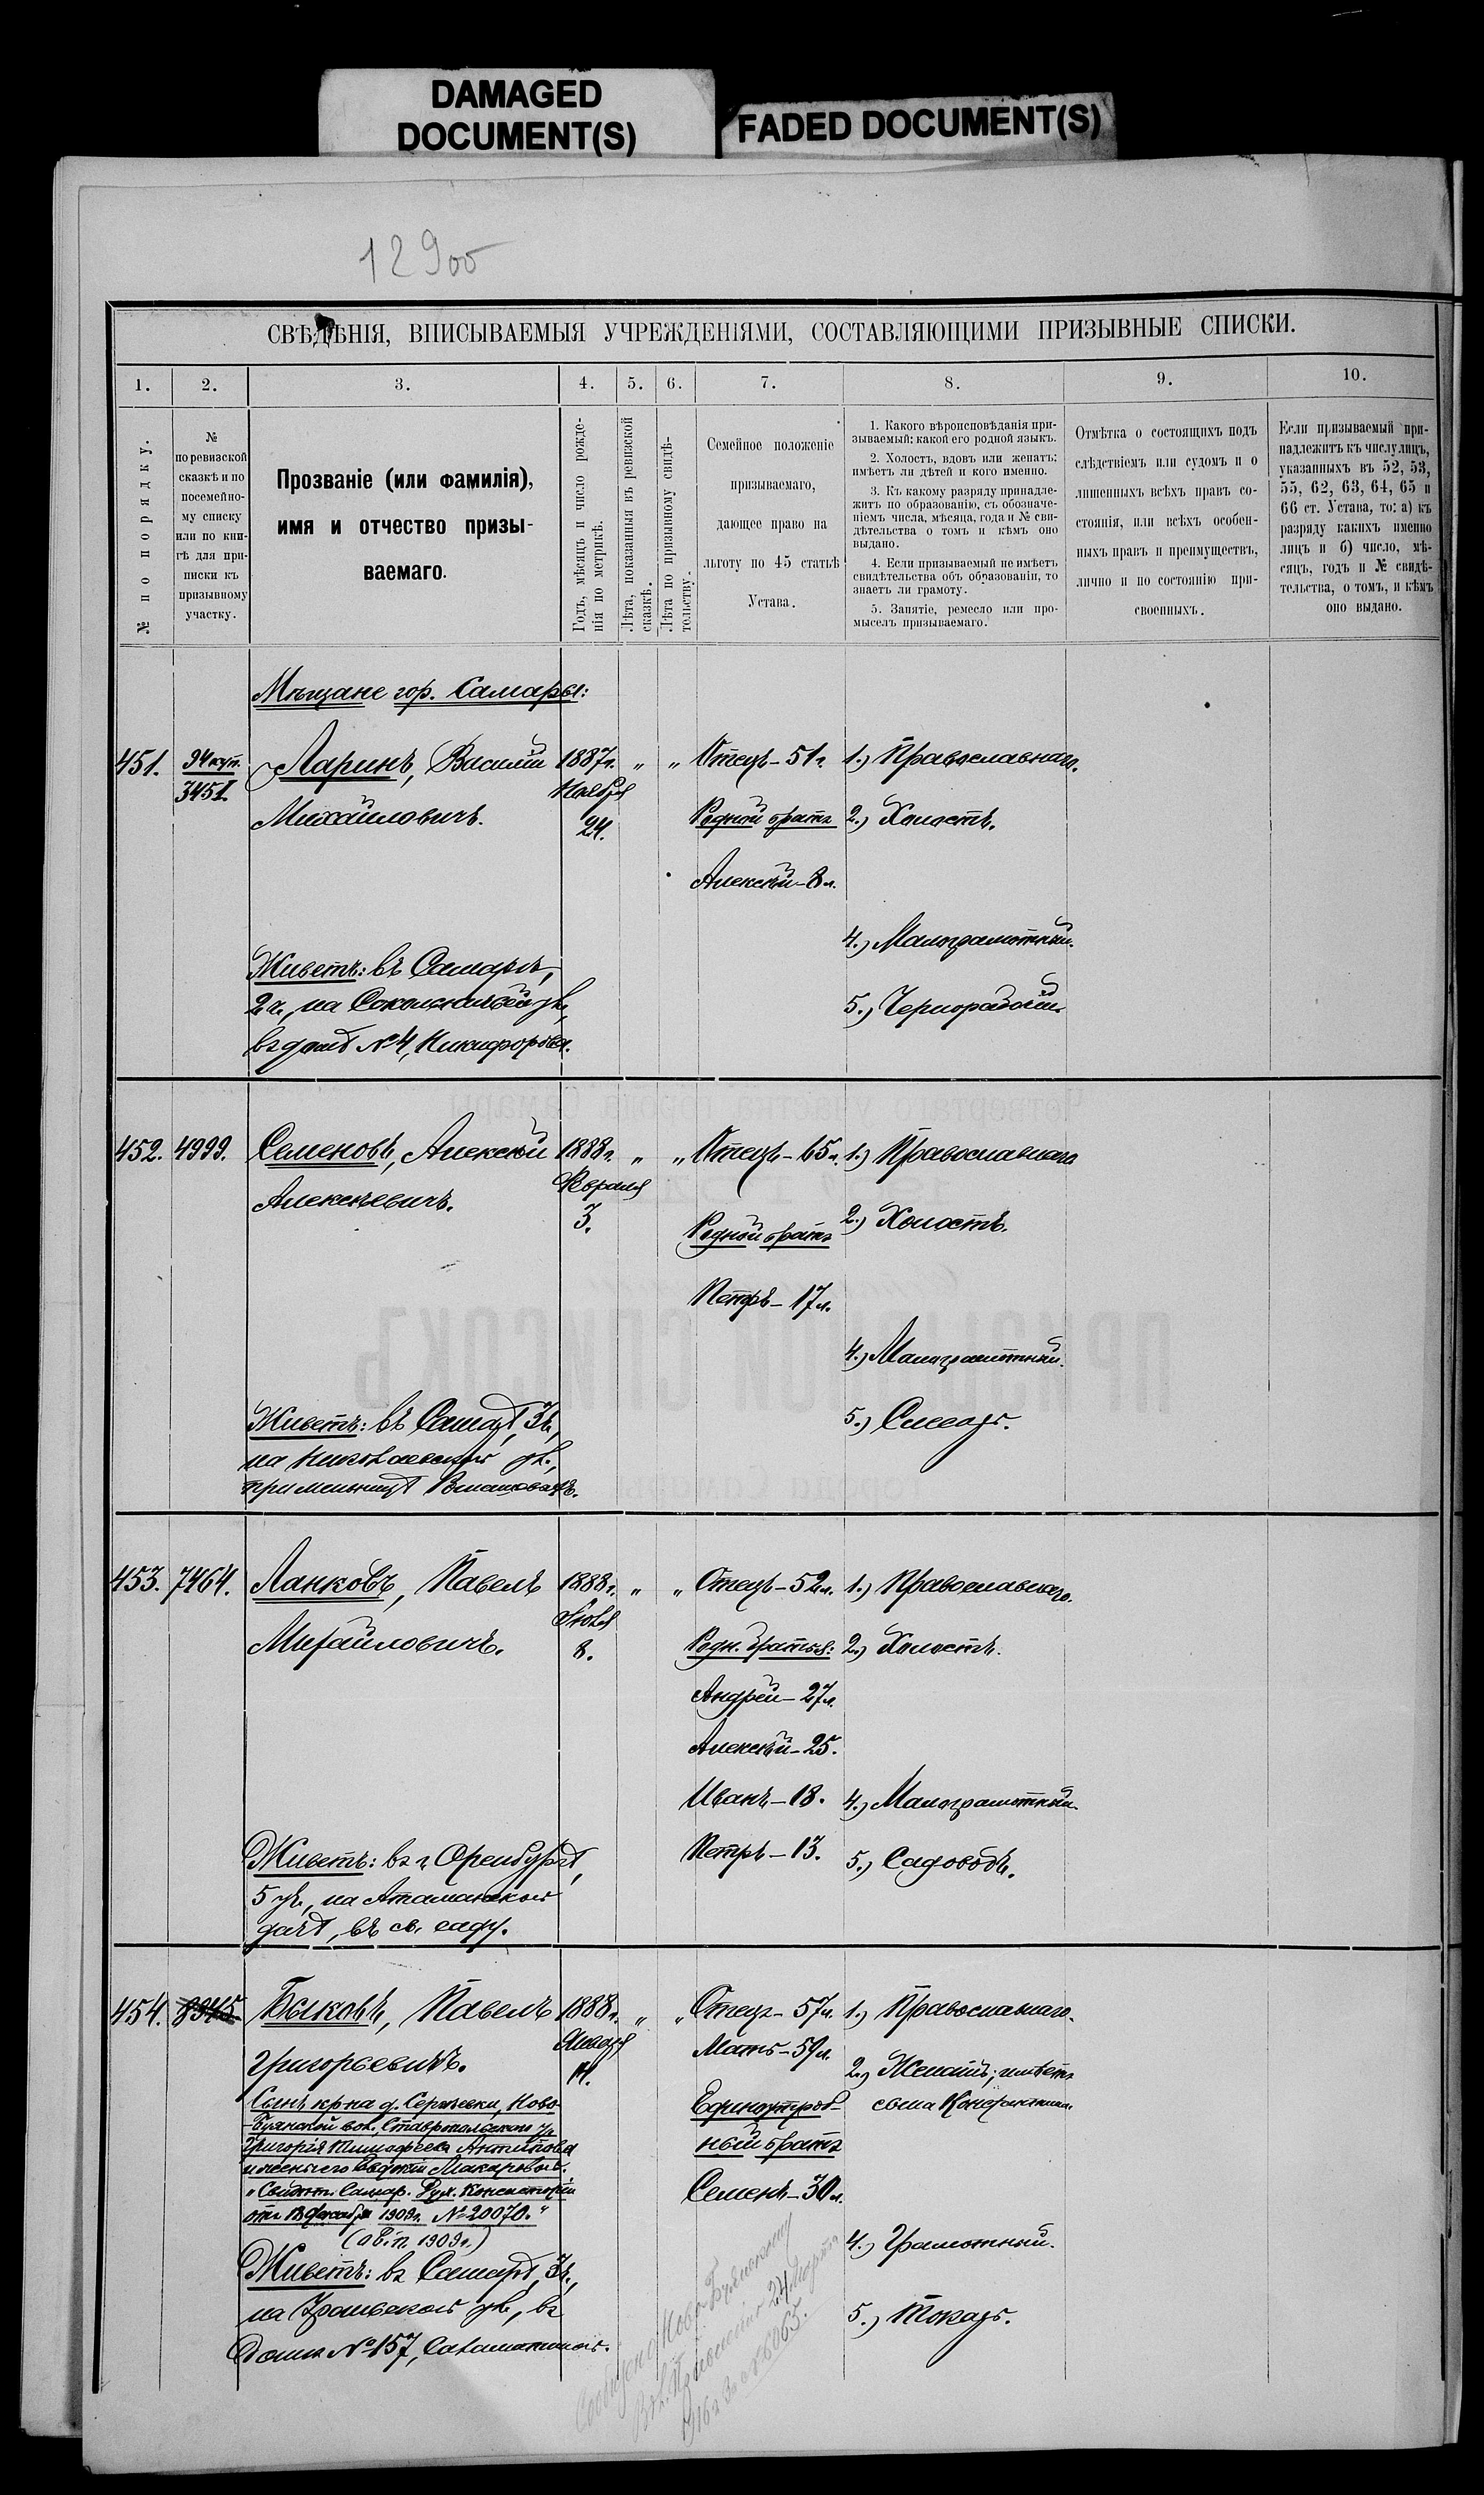 DAMAGED
DOCUMENT(S)
FADED DOCUMENT(S)
12900
СВѢДѢНІЯ, ВПИСЫВАЕМЫЯ УЧРЕЖДЕНІЯМИ, СОСТАВЛЯЮЩИМИ ПРИЗЫВНЫЕ СПИСКИ.
1. 2. 3. 4. 5. 6. 7. 8. 9. 10.
№ по порядку.
№
по ревизской
сказкѣ и по
посемейно-
му списку
или по кни-
гѣ для при-
писки къ
призывному
участку.
Прозваніе (или фамилія),
имя и отчество призы-
ваемаго.
Годъ, мѣсяцъ и число рожде-
нія по метрикѣ.
Лѣта, показанныя въ ревизской
сказкѣ.
Лѣта по призывному свидѣ-
тельству.
Семейное положеніе
призываемаго,
дающее право на
льготу по 45 статьѣ
Устава.
1. Какого вѣроисповѣданія при-
зываемый: какой его родной языкъ.
2. Холостъ, вдовъ или женатъ:
имѣетъ ли дѣтей и кого именно.
3. Къ какому разряду принадле-
житъ по образованію, съ обозначе-
ніемъ числа, мѣсяца, года и № сви-
дѣтельства о томъ и кѣмъ оно
выдано.
4. Если призываемый не имѣетъ
свидѣтельства объ образованіи, то
знаетъ ли грамоту.
5. Занятіе, ремесло или про-
мыселъ призываемаго.
Отмѣтка о состоящихъ подъ
слѣдствіемъ или судомъ и о
лишенныхъ всѣхъ правъ со-
стоянія, или всѣхъ особен-
ныхъ правъ и преимуществъ,
лично и по состоянію при-
своенныхъ.
Если призываемый при-
надлежитъ къ числу лицъ,
указанныхъ въ 52, 53,
55, 62, 63, 64, 65 и
66 ст. Устава, то: а) къ
разряду какихъ именно
лицъ и б) число, мѣ-
сяцъ, годъ и № свидѣ-
тельства, о томъ, и кѣмъ
оно выдано.
Мѣщане гор. Самары:
451. 3451. Ларинъ, Василій 1887г. " " Отецъ - 51г. 1.) Православнаго.
Михайловичъ. Ноября 24. Родной братъ 2.) Холостъ.
Алексѣй - 8 л.
4.) Малограмотный.
Живетъ: въ Самарѣ,
2 ч., на Сокольничьей ул., 5.) Чернорабочій.
въ домѣ № 4, Никифорова.
452. 4999. Семеновъ, Алексѣй 1888г. " " Отецъ - 65 л. 1.) Православнаго
Алексѣевичъ. Февраля 3. Родной братъ 2.) Холостъ.
Петръ - 17 л.
4.) Малограмотный.
Живетъ: въ Самарѣ, 3 ч., 5.) Слесарь.
на Николаевской ул.,
при мельницѣ
453. 7464. Ланковъ, Павелъ 1888г. " " Отецъ - 52 л. 1.) Православнаго.
Михайловичъ. 8. Родн. братья: 2.) Холостъ.
Андрей - 27 л.
Алексѣй - 25.
Иванъ - 18. 4.) Малограмотный.
Петръ - 13. 5.) Садоводъ.
Живетъ: въ г. Оренбургѣ,
5 уч., на Атаманской
дачѣ, въ св. саду.
454. 8345 Быковъ, Павелъ 1888г. " " Отецъ - 57 л. 1.) Православнаго.
Григорьевичъ. Января Мать - 59 л. 2.) Женатъ; имѣетъ
сына Константина.
Единоутроб-
ный братъ
Семенъ - 30 л.
Сынъ кр-на д. Сергѣевки, Ново-
-Буянской вол. Ставропольскаго у.
Григорія Тимофеева Антипова
и жены его Евдокіи Макаровой.
"Свидѣт. Самар. Дух. Консисторіи
1909г. № 20070."
Живетъ: въ Самарѣ, 3 ч., 4.) Грамотный.
на Уральской ул., въ 5.) Токарь.
домѣ № 157,
Сообщено Ново-Буянскому
Вол. Правленію 24 Марта
1916 г. за № 6065.